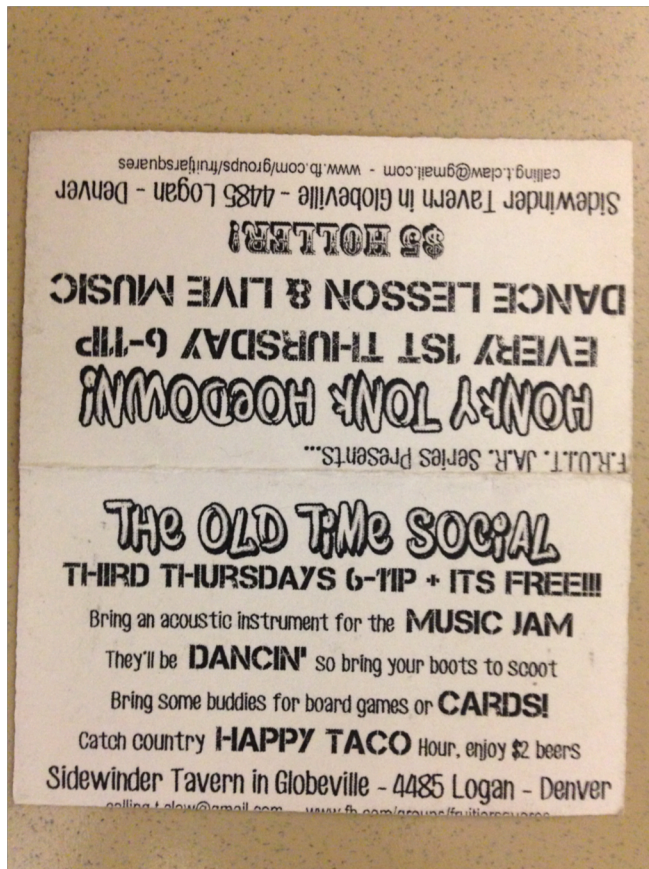 F.R.U.I.T. JA.R. Series Presents...
HONKY TONK HOEDOWN!
EVERY 1ST THURSDAY 6-11P
DANCE LESSON & LIVE MUSIC
$5 HOLLER!
Sidewinder Tavern in Globeville - 4485 Logan - Denver
calling.t.claw@gmail.com - www.fb.com/groups/fruitjarsquares
THE OLD TIME SOCIAL
THIRD THURSDAYS 6-11P + ITS FREE!!!
Bring an acoustic instrument for the MUSIC JAM
They'll be DANCIN' so bring your boots to scoot
Bring some buddies for board games or CARDS!
Catch country HAPPY TACO Hour, enjoy $2 beers
Sidewinder Tavern in Globeville - 4485 Logan - Denver
calling.t.claw@gmail.com www.fb.com/groups/fruitjarsquares